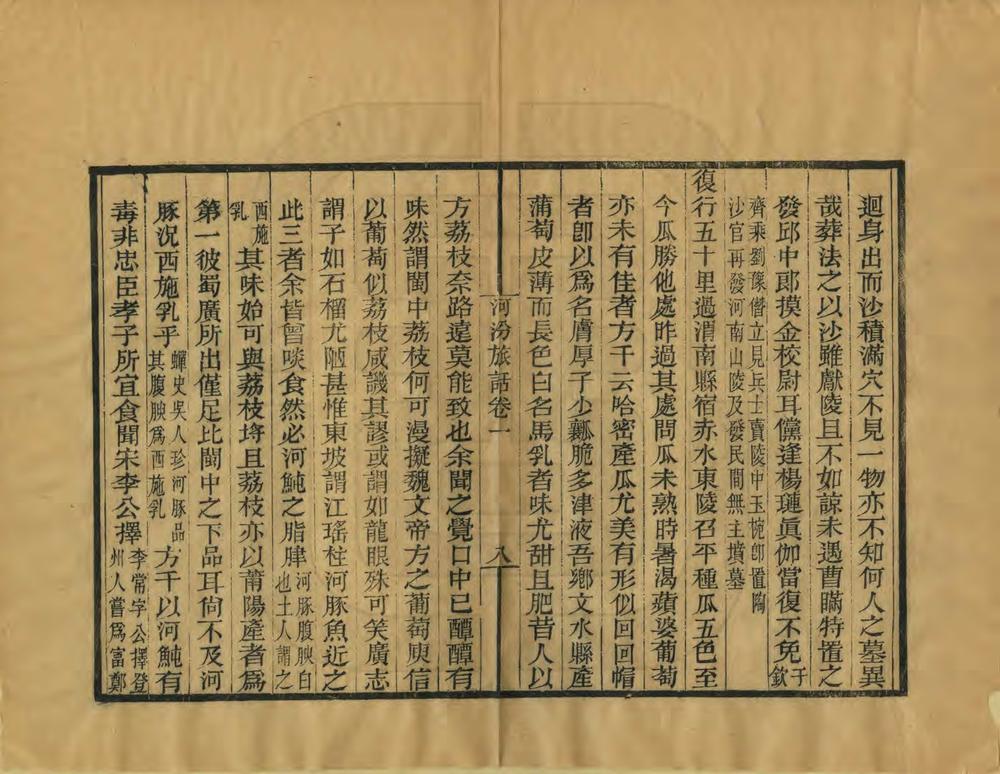 迴身出而沙積滿穴不見一物亦不知何人之墓異
哉葬法之以沙雖獻陵且不如諒未遇曹瞞特置之
發邱中郎摸金校尉耳儻逢楊璉眞伽當復不免于欽
齊乘劉豫僭立見兵士賣陵中玉椀卽置陶
沙官再發河南山陵及發民間無主墳墓
復行五十里過渭南縣宿赤水東陵召平種瓜五色至
今瓜勝他處昨過其處問瓜未熟時暑渴蘋婆葡萄
亦未有佳者方千云哈密產瓜尤美有形似回回帽
者卽以爲名膚厚子少瓤脆多津液吾鄉文水縣產
蒲萄皮薄而長色白名馬乳者味尤甜且肥昔人以
河汾旅話卷一
八
方荔枝奈路遠莫能致也余聞之覺口中已醰醰有
味然謂閩中荔枝何可漫擬魏文帝方之葡萄庾信
以葡萄似荔枝咸譏其謬或謂如龍眼殊可笑廣志
謂子如石榴尤陋甚惟東坡謂江瑤柱河豚魚近之
此三者余皆曾啖食然必河魨之脂𦝫河豚腹腴白
也土人謂之
西施
乳其味始可與荔枝埒且荔枝亦以莆陽產者爲
第一彼蜀廣所出僅足比閩中之下品耳尙不及河
豚況西施乳乎蟬史吳人珍河豚品
其腹腴爲西施乳方千以河魨有
毒非忠臣孝子所宜食聞宋李公擇李常字公擇登
州人嘗爲富鄭